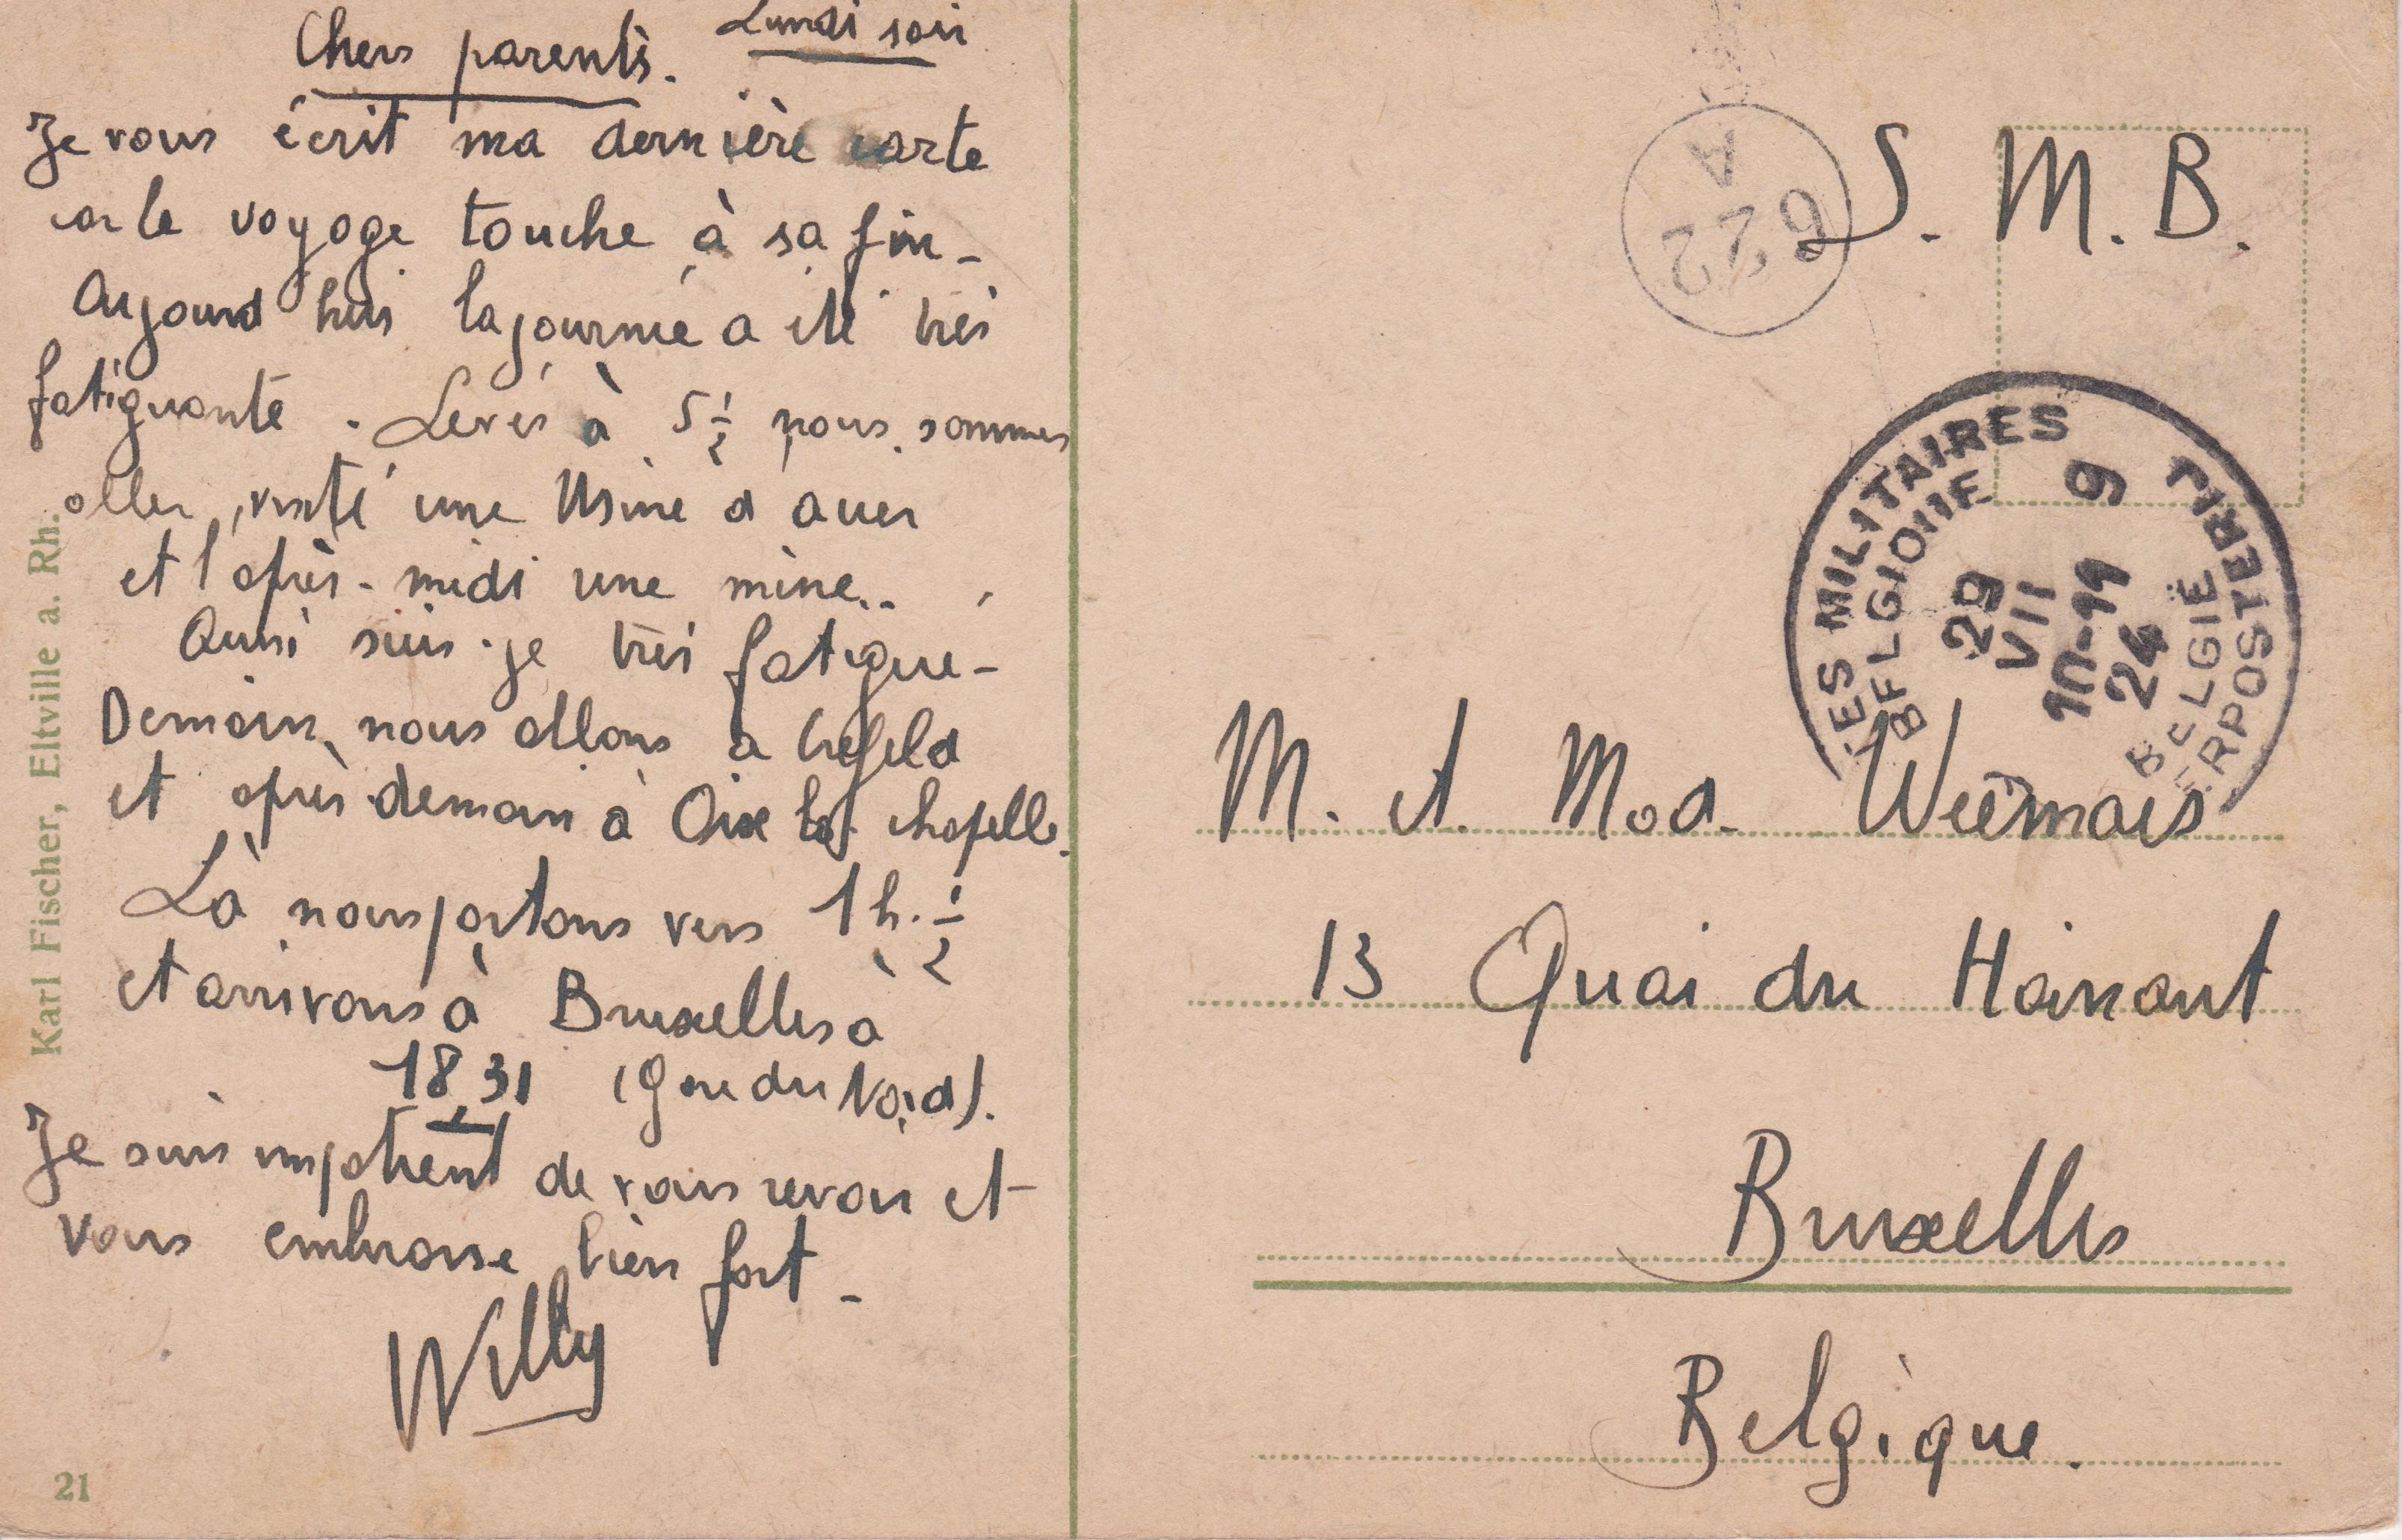 Lundi soir
Chers parents.
Je vous écrit ma dernière carte
car le voyage touche à sa fin -
Aujourd hui la journée a été très
fatiguante. Levés à 5 1/2 nous sommes
aller visité une Usine d acier
et l après-midi une mine..
Aussi suis-je très fatigue -
Demain nous allons à Crefeld
et après demain à Aix la chapelle.
Là nous partons vers 1 h. 1/2
et arrivons à Bruxelles à
18,31 (Gare du Nord).
Je suis impatient de vous revoir et
vous embrasse bien fort -
Willy
Karl Fischer, Eltville a. Rh.
21
622
A
S. M. B.
ES MILITAIRES
BELGIQUE
9
29
VII
10-11
24
BELGIË
ERPOSTERIJ
M. et Mad.
13 Quai du Hainaut
Bruxelles
Belgique.